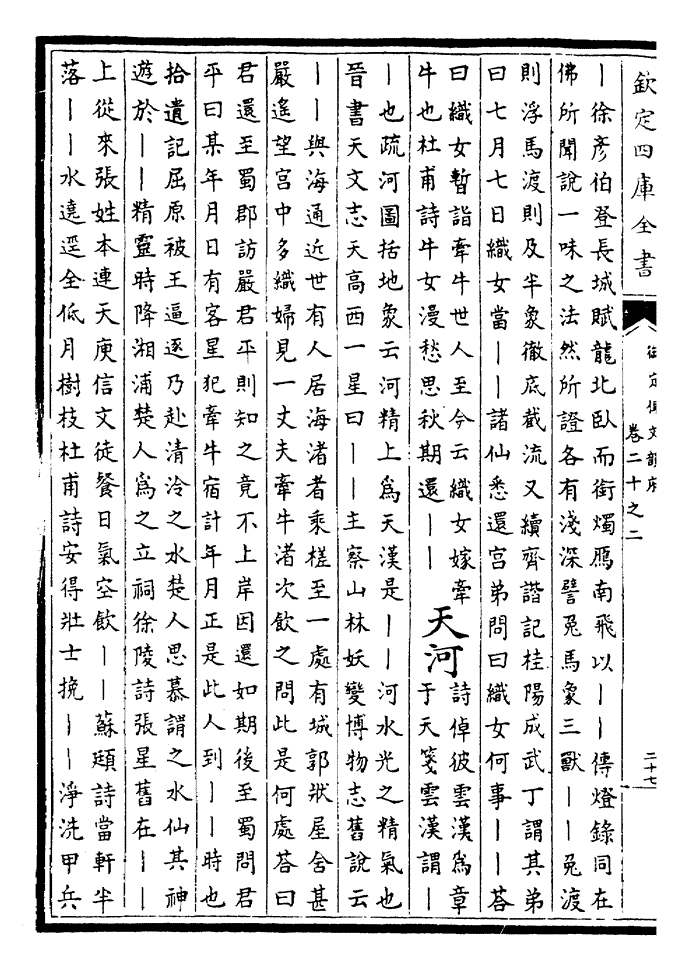 欽定四庫全書
御定佩文韻府
卷二十之二
二十七
｜徐彥伯登長城賦龍北臥而銜燭鴈南飛以｜｜傳燈錄同在
佛所聞說一味之法然所證各有淺深譬兔馬象三獸｜｜兔渡
則浮馬渡則及半象徹底截流又續齊諧記桂陽成武丁謂其弟
曰七月七日織女當｜｜諸仙悉還宮弟問曰織女何事｜｜荅
曰織女暫詣牽牛世人至今云織女嫁牽
牛也杜甫詩牛女漫愁思秋期還｜｜
天河
詩倬彼雲漢爲章
于天箋雲漢謂｜
｜也疏河圖括地象云河精上爲天漢是｜｜河水光之精氣也
晉書天文志天高西一星曰｜｜主察山林妖變博物志舊說云
｜｜與海通近世有人居海渚者乘槎至一處有城郭狀屋舍甚
嚴遙望宮中多織婦見一丈夫牽牛渚次飲之問此是何處荅曰
君還至蜀郡訪嚴君平則知之竟不上岸因還如期後至蜀問君
平曰某年月日有客星犯牽牛宿計年月正是此人到｜｜時也
拾遺記屈原被王逼逐乃赴清泠之水楚人思慕謂之水仙其神
遊於｜｜精靈時降湘浦楚人爲之立祠徐陵詩張星舊在｜｜
上從來張姓本連天庾信文徒餐日氣空飲｜｜蘇頲詩當軒半
落｜｜水遶逕全低月樹枝杜甫詩安得壯士挽｜｜淨洗甲兵